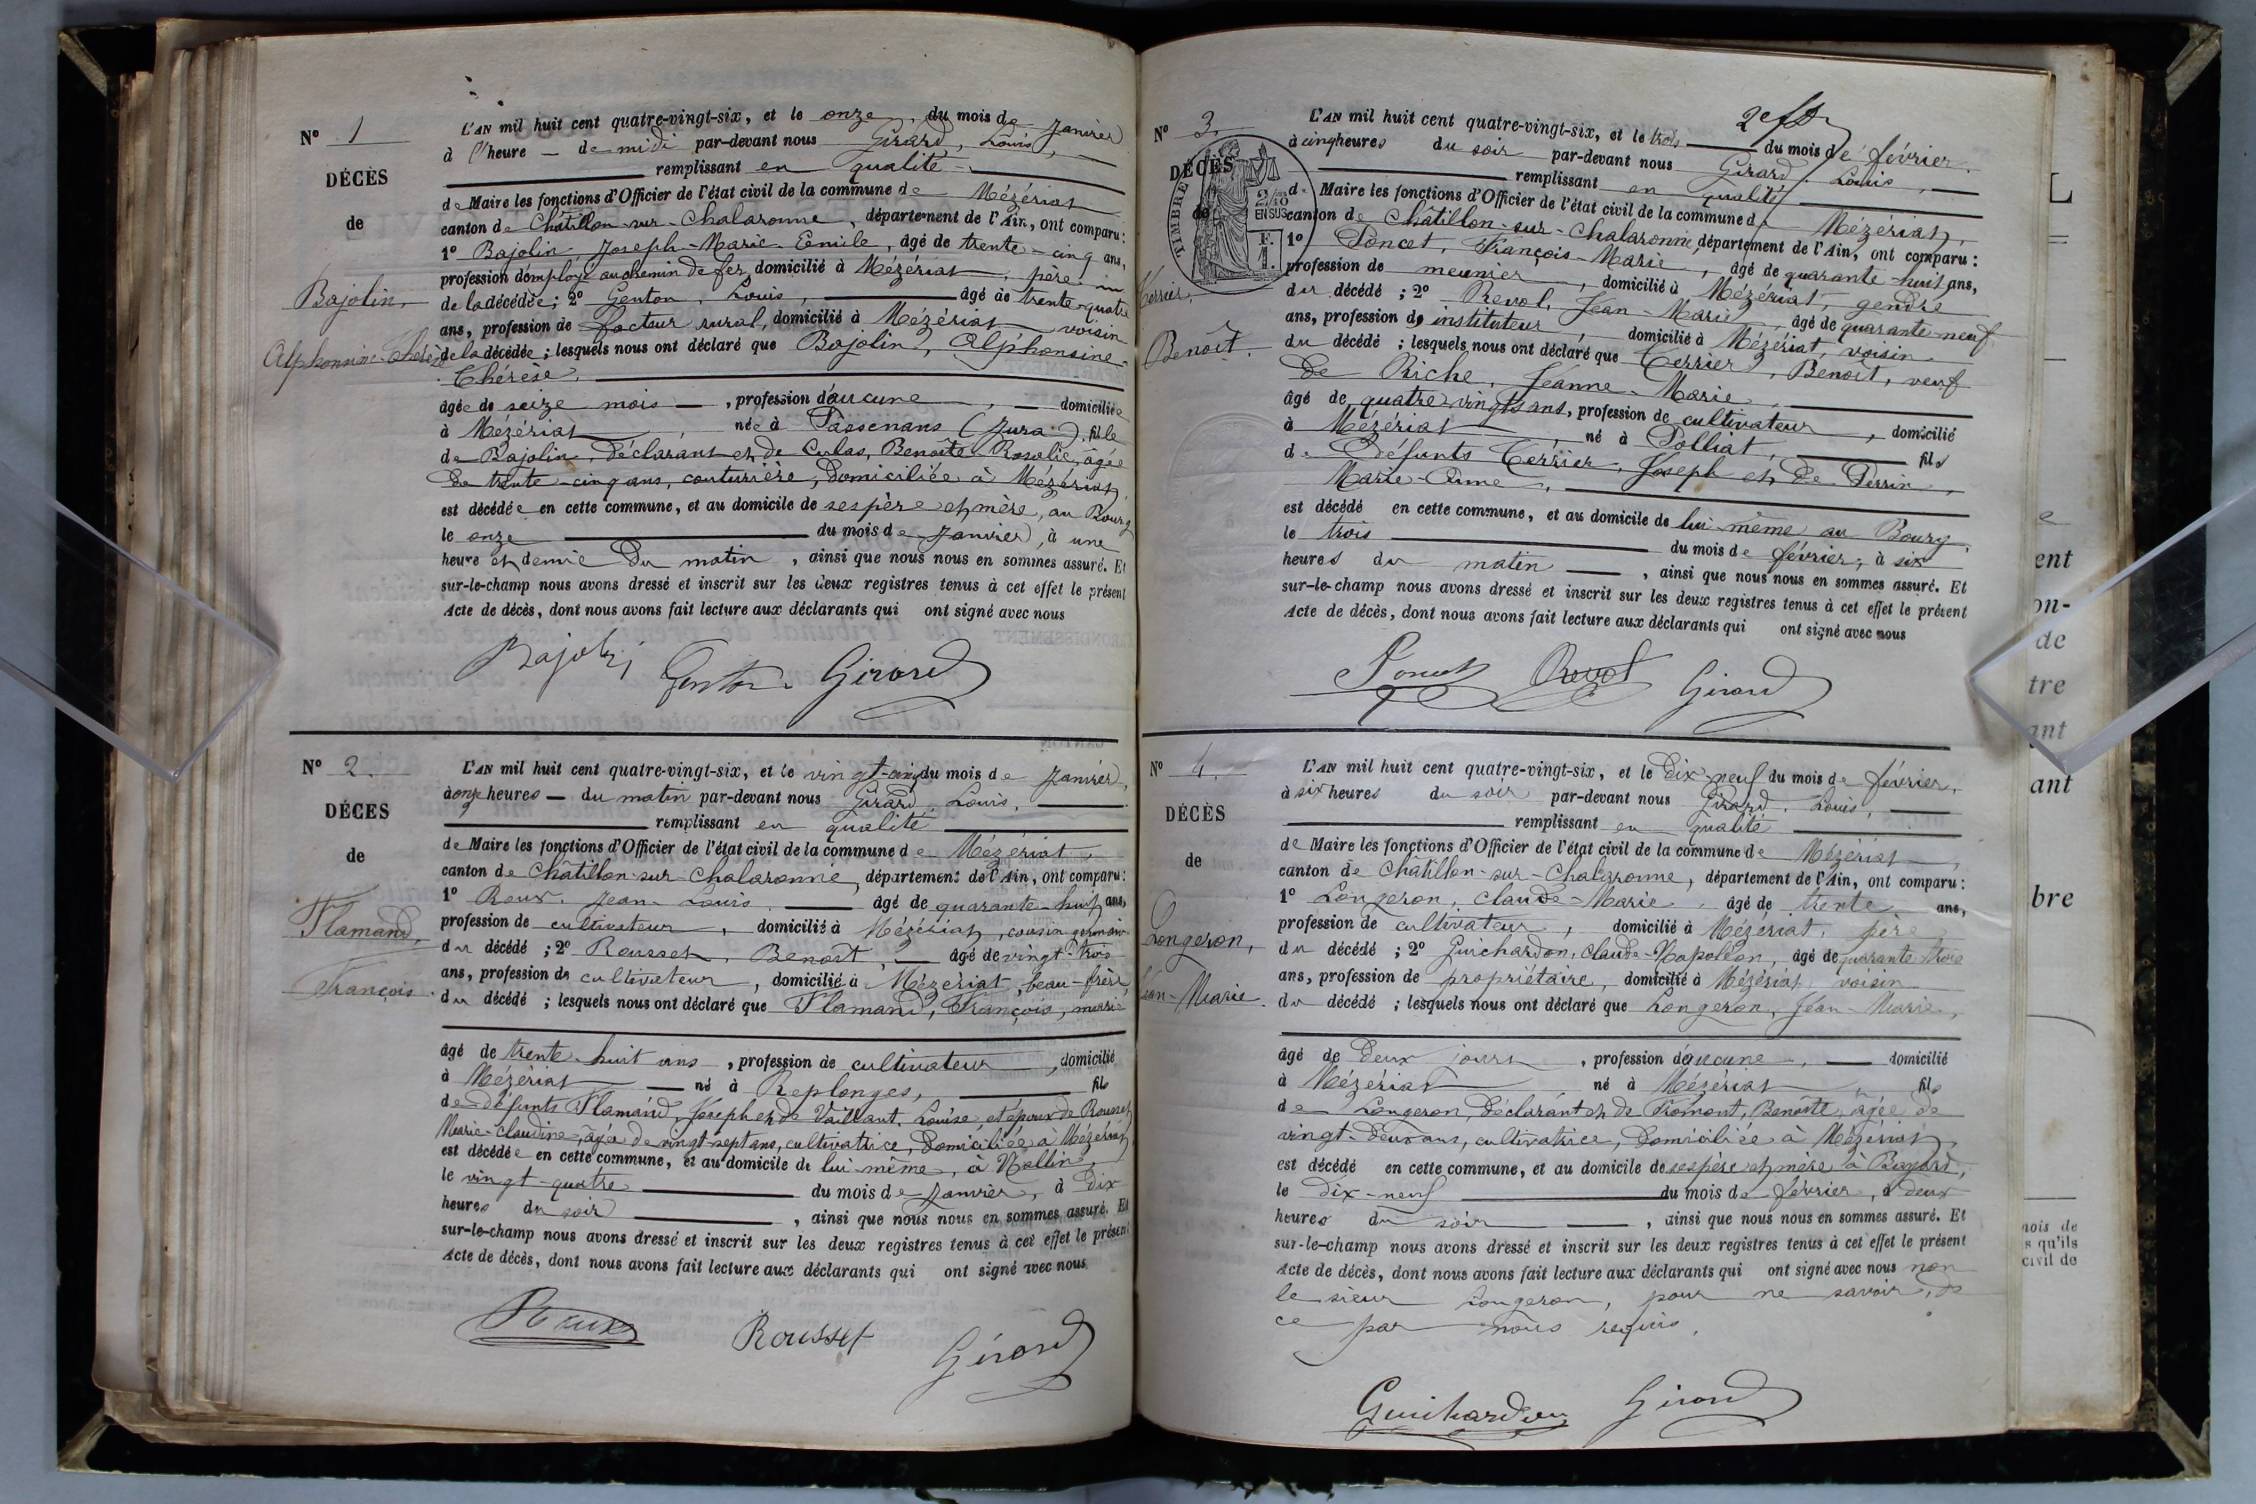 N° 1
DÉCÈS
de
Bajolin,
Alphonsine-Thérèse
L'AN mil huit cent quatre-vingt-six, et le onze, du mois de Janvier
à l'heure — de midi par-devant nous Girard, Louis,
remplissant en qualité
de Maire les fonctions d'Officier de l'état civil de la commune de Mézériat
canton de Châtillon-sur-Chalaronne, département de l'Ain, ont comparu:
1° Bajolin Joseph-Marie-Emile, âgé de trente-cinq ans,
profession d'employé au chemin de fer, domicilié à Mézériat, père
de la décédée; 2° Genton, Louis, âgé de trente-quatre
ans, profession de facteur rural, domicilié à Mézériat voisin
de la décédée; lesquels nous ont déclaré que Bajolin, Alphonsine-
Thérèse.
âgée de seize mois —, profession d'aucune, — domiciliée
à Mézériat née à Passenans (Jura), fille
de Bajolin, déclarant et de Culas, Benoîte Rosalie, âgée
de trente-cinq ans, couturière, domiciliée à Mézériat,
est décédée en cette commune, et au domicile de ses père et mère, au Bourg
le onze du mois de Janvier, à une
heure et demie du matin, ainsi que nous nous en sommes assuré. Et
sur-le-champ nous avons dressé et inscrit sur les deux registres tenus à cet effet le présent
Acte de décès, dont nous avons fait lecture aux déclarants qui ont signé avec nous
Bajolin Genton Girard
N° 2.
DÉCES
de
Flamand,
François.
L'AN mil huit cent quatre-vingt-six, et le vingt-cinq du mois de Janvier,
à onze heures — du matin par-devant nous Girard, Louis,
remplissant en qualité
de Maire les fonctions d'Officier de l'état civil de la commune de Mézériat,
canton de Châtillon-sur-Chalaronne, département de l'Ain, ont comparu:
1° Roux, Jean-Louis, âgé de quarante-huit ans,
profession de cultivateur, domicilié à Mézériat, cousin germain
du décédé; 2° Rousset, Benoît, — âgé de vingt-trois
ans, profession de cultivateur, domicilié à Mézériat, beau-frère,
du décédé; lesquels nous ont déclaré que Flamand, François, marié
âgé de trente-huit ans, profession de cultivateur, domicilié
à Mézériat — né à Replonges, fils
de défunts Flamand, Joseph et de Vaillant, Louise, et époux de Rousset
Marie-Claudine, âgée de vingt-sept ans, cultivatrice, domiciliée à Mézériat
est décédé en cette commune, et au domicile de lui-même, à
le vingt-quatre du mois de Janvier, à dix
heures du soir, ainsi que nous nous en sommes assuré. Et
sur-le-champ nous avons dressé et inscrit sur les deux registres tenus à cet effet le présent
Acte de décès, dont nous avons fait lecture aux déclarants qui ont signé avec nous
Roux Rousset Girard
N° 3.
DÉCÈS
de
Terrier,
Benoît.
TIMBRE
2/10
EN SUS
F.
1.
L'AN mil huit cent quatre-vingt-six, et le trois du mois de février.
à cinq heures du soir par-devant nous Girard, Louis,
remplissant en qualité
de Maire les fonctions d'Officier de l'état civil de la commune de Mézériat,
canton de Châtillon-sur-Chalaronne, département de l'Ain, ont comparu:
1° Poncet, François-Marie, âgé de quarante-huit ans,
profession de meunier, domicilié à Mézériat, gendre
du décédé; 2° Revol, Jean-Marie, âgé de quarante-neuf
ans, profession d'instituteur, domicilié à Mézériat, voisin
du décédé; lesquels nous ont déclaré que Terrier, Benoît, veuf
de Riche, Jeanne-Marie,
âgé de quatre-vingts ans, profession de cultivateur, domicilié
à Mézériat né à Polliat, fils
de défunts Terrier, Joseph et de Perrin,
Marie-Anne,
est décédé en cette commune, et au domicile de lui-même, au Bourg.
le trois du mois de février, à six
heures du matin —, ainsi que nous nous en sommes assuré. Et
sur-le-champ nous avons dressé et inscrit sur les deux registres tenus à cet effet le présent
Acte de décès, dont nous avons fait lecture aux déclarants qui ont signé avec nous
Poncet Revol Girard
N° 4.
DÉCÈS
de
Longeron,
Jean-Marie.
L'AN mil huit cent quatre-vingt-six, et le dix-neuf du mois de février,
à six heures du soir par-devant nous Girard, Louis,
remplissant en qualité
de Maire les fonctions d'Officier de l'état civil de la commune de Mézériat,
canton de Châtillon-sur-Chalaronne, département de l'Ain, ont comparu:
1° Longeron, Claude-Marie, âgé de trente ans,
profession de cultivateur, domicilié à Mézériat, père
du décédé; 2° Guichardon, Claude-Napoléon, âgé de quarante-trois
ans, profession de propriétaire, domicilié à Mézériat, voisin
du décédé; lesquels nous ont déclaré que Longeron, Jean-Marie,
âgé de deux jours, profession d'aucune, — domicilié
à Mézériat né à Mézériat fils
de Longeron, déclarant et de Fromont, Benoîte, âgée de
vingt-deux ans, cultivatrice, domiciliée à Mézériat,
est décédé en cette commune, et au domicile de ses père et mère à Bayard,
le dix-neuf du mois de février, à deux
heures du soir —, ainsi que nous nous en sommes assuré. Et
sur-le-champ nous avons dressé et inscrit sur les deux registres tenus à cet effet le présent
Acte de décès, dont nous avons fait lecture aux déclarants qui ont signé avec nous non
le sieur Longeron, pour ne savoir, de
ce par nous requis.
Guichardon Girard
L
ent
on-
de
tre
ant
ant
bre
mois de
s qu'ils
civil de